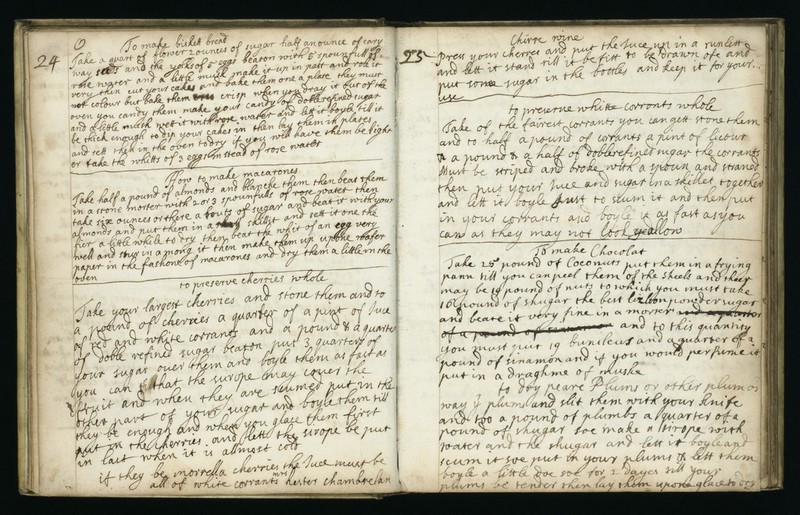 24
To make bisket bread
Take a quart of flower 2 ounces of sugar half an ounce of cary
way seeds and the yolks of 6 eggs beaton with 6 spounfulls of
rose water and a little musk make it up in past and role it
very thin cut your cakes and bake them one a plate they must
not colour but bake them crisp when you dray it out of the
oven you candy them make your candy of doblerefined sugar
and a little musk wet it with rose water and lett it boyle till it
be thick enough to dip your cakes in then lay them in plates
and sett them in the oven to dry if you will have them be light
or take the whits of 3 eggs in stead of rose water
How to make macarones
Take half a pound of almonds and blanch them then beat them
in a stone morter with 2 or 3 spounfulls of rose water then
take six ounces or there a bouts of sugar and beat it with your
almonds and put them in a skillet and sett it one the
fier a little while to dry then beat the whit of an egg very
well and this in a mong it then make them up upon wafer
paper in the fashone of macarones and dry them a little in the
oven
to preserve cherries whole
Take your largest cherries and stone them and to
a pound of cherries a quarter of a pint of Juce
of red and white corrants and a pound & a quarter
of doble refined sugar beaton put 3 quarters of
your sugar over them and boyle them as fast as
you can that the surope may couer the
fruit and when they are scumed put in the
other part of your sugar and boyle them till
they be enough and when you glase them first
put in the cherries and lett the sirope be put
in last when it is almost cold
if they be morrella cherries the Juce must be
all of white corrants mrs hester chamberlan
25
Chirre wine
Press your cherres and put the Juce up in a runlett
and lett it stand till it be fitt to be drawn ofe and
put some sugar in the bottles and keep it for your
use
to preserve white corronts whole
Take of the fairest corrants you can gett stone them
and to half a pound of corrants a pint of licour
& a pound & a half of doblerefined sugar the corrants
Must be striped and broke with a spoun and straned
then put your Juce and sugar in a skillet together
and lett it boyle Just to scum it and then put
in your corrants and boyle it as fast as you
can as they may not look yeallow
To make Chocolat
Take 25 pound of Coconuts put them in a frying
pann till you can peel them of the sheels and ther
may be 19 pound of nuts to which you must take
10 pound of shugar the best lisbon powder sugar
and beate it very fine in a morter
and to this quantity
you must put 19 bunileus and a quarter of a
pound of sinamon and if you would perfume it
put in a draghme of muske
to dry peare Plums or other plum
way ye plums and slit them with your knife
and too a pound of plumbs a quarter of a
pound of shugar soe make a sirope with
water and the shugar and lett it boyle and
scum it soe put in your plums & lett them
boyle a little doe soe for 2 dayes till your
plums be tender then lay them upon a glace to dry